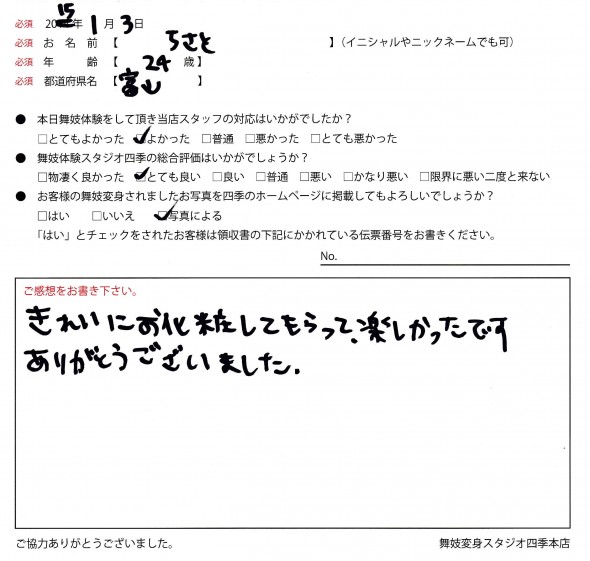 必須 2015年 1月 3日
必須 お名前【 ちさと 】(イニシャルやニックネームでも可)
必須 年齢【 24 歳】
必須 都道府県名【 富山 】
● 本日舞妓体験をして頂き当店スタッフの対応はいかがでしたか?
□とてもよかった ☑よかった □普通 □悪かった □とても悪かった
● 舞妓体験スタジオ四季の総合評価はいかがでしょうか?
□物凄く良かった ☑とても良い □良い □普通 □悪い □かなり悪い □限界に悪い二度と来ない
● お客様の舞妓変身されましたお写真を四季のホームページに掲載してもよろしいでしょうか?
□はい □いいえ ☑写真による
「はい」とチェックをされたお客様は領収書の下記にかかれている伝票番号をお書きください。
No.
ご感想をお書き下さい。
きれいにお化粧してもらって、楽しかったです
ありがとうございました.
ご協力ありがとうございました。 舞妓変身スタジオ四季本店